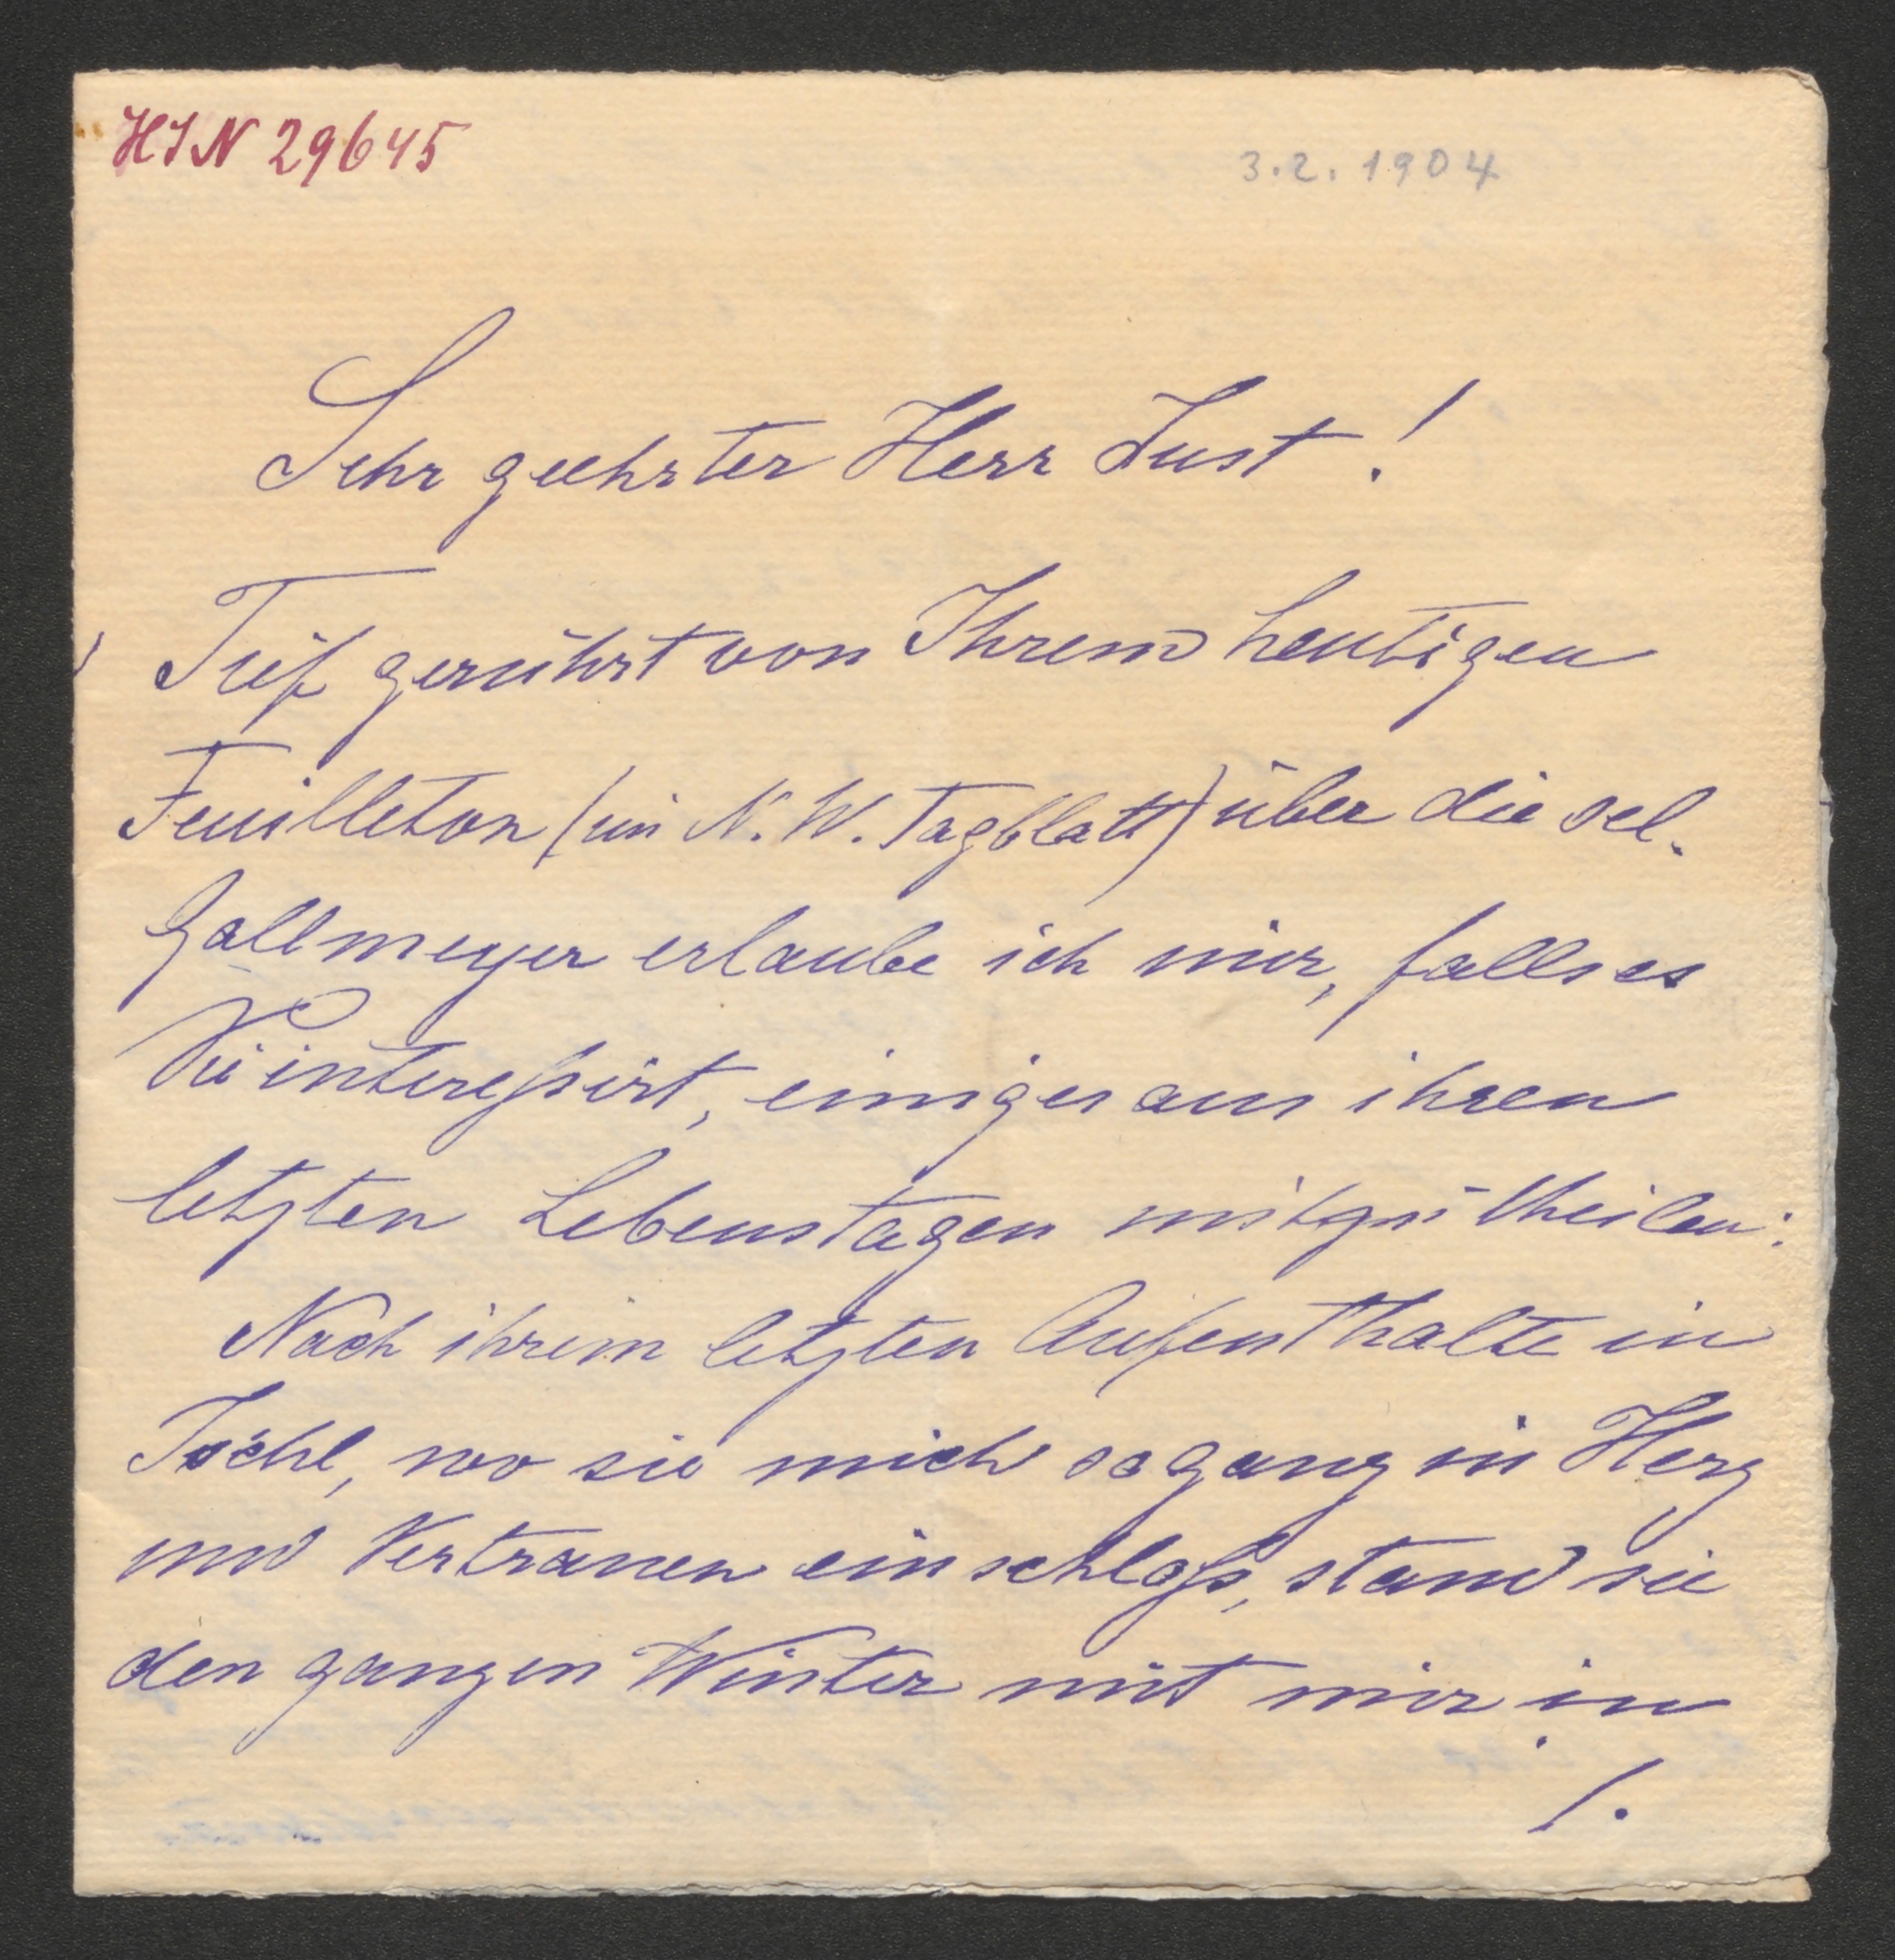 HIN 29645
3.2.1904
Sehr geehrter Herr Lust!
Tief gerührt von Ihrem heutigen
Feuilleton (im N. W. Tagblatt) über die sel.
Gallmeyer erlaube ich mir, falls es
Sie interessirt, einiges aus ihren
letzten Lebenstagen mitzutheilen:
Nach ihrem letzten Aufenthalte in
Ischl, wo sie mich so ganz in Herz
und Vertrauen einschloss, stand sie
den ganzen Winter mit mir in
/.